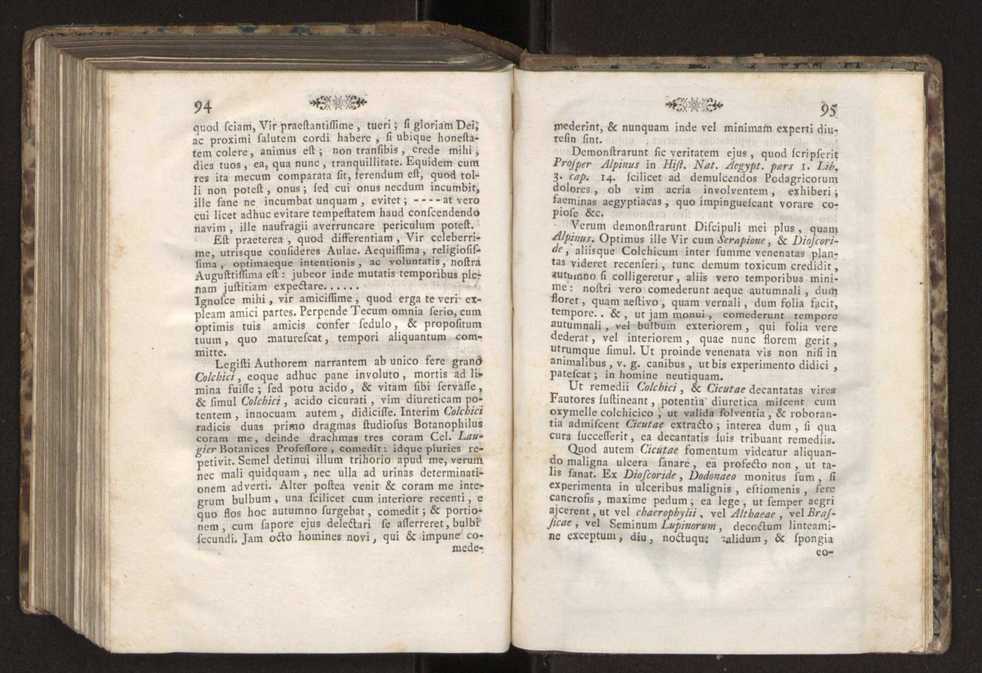 94
quod ſciam, Vir praeſtantiſſime, tueri; ſi gloriam Dei,
ac proximi ſalutem cordi habere, ſi ubique honeſta-
tem colere, animus eſt; non tranſibis, crede mihi,
dies tuos, ea, qua nunc, tranquillitate. Equidem cum
res ita mecum comparata ſit, ferendum eſt, quod tol-
li non poteſt, onus; ſed cui onus necdum incumbit,
ille ſane ne incumbat unquam, evitet; ----at vero
cui licet adhuc evitare tempeſtatem haud conſcendendo
navim, ille naufragii averruncare periculum poteſt.
Eſt praeterea, quod differentiam, Vir celeberri-
me, utrisque conſideres Aulae. Aequiſſima, religioſiſ-
ſima, optimaeque intentionis, ac voluntatis, noſtra
Auguſtiſſima eſt: jubeor inde mutatis temporibus ple-
nam juſtitiam expectare......
Ignoſce mihi, vir amiciſſime, quod erga te veri ex-
pleam amici partes. Perpende Tecum omnia ſerio, cum
optimis tuis amicis confer ſedulo, & propoſitum
tuum, quo matureſcat, tempori aliquantum com-
mitte.
Legiſti Authorem narrantem ab unico fere grano
Colchici, eoque adhuc pane involuto, mortis ad li-
mina fuiſſe; ſed potu acido, & vitam ſibi ſervaſſe,
& ſimul Colchici, acido cicurati, vim diureticam po-
tentem, innocuam autem, didiciſſe. Interim Colchici
radicis duas primo dragmas ſtudioſus Botanophilus
coram me, deinde drachmas tres coram Cel. Lau-
gier Botanices Profeſſore, comedit: idque pluries re-
petivit. Semel detinui illum trihorio apud me, verum
nec mali quidquam, nec ulla ad urinas determinati-
onem adverti. Alter poſtea venit & coram me inte-
grum bulbum, una ſcilicet cum interiore recenti, e
quo flos hoc autumno ſurgebat, comedit; & portio-
nem, cum ſapore ejus delectari ſe aſſerreret, bulbi
ſecundi. Jam octo homines novi, qui & impune co-
mede-
95
mederint, & nunquam inde vel minimam experti diu-
reſin ſint.
Demonſtrarunt ſic veritatem ejus, quod ſcripſerit
Proſper Alpinus in Hiſt. Nat. Aegypt. pars 1. Lib.
3. cap. 14. ſcilicet ad demulcendos Podagricorum
dolores, ob vim acria involventem, exhiberi;
faeminas aegyptiacas, quo impingueſcant vorare co-
pioſe &c.
Verum demonſtrarunt Diſcipuli mei plus, quam
Alpinus. Optimus ille Vir cum Serapione, & Dioſcori-
de, aliisque Colchicum inter ſumme venenatas plan-
tas videret recenſeri, tunc demum toxicum credidit,
autumno ſi colligeretur, aliis vero temporibus mini-
me: noſtri vero comederunt aeque autumnali, dum
floret, quam aeſtivo, quam vernali, dum folia facit,
tempore.. &, ut jam monui, comederunt tempore
autumnali, vel bulbum exteriorem, qui folia vere
dederat, vel interiorem, quae nunc florem gerit,
utrumque ſimul. Ut proinde venenata vis non niſi in
animalibus, v. g. canibus, ut bis experimento didici,
pateſcat; in homine neutiquam.
Ut remedii Colchici, & Cicutae decantatas vires
Fautores ſuſtineant, potentia diuretica miſcent cum
oxymelle colchicico, ut valida ſolventia, & roboran-
tia admiſcent Cicutae extracto; interea dum, ſi qua
cura ſucceſſerit, ea decantatis ſuis tribuant remediis.
Quod autem Cicutae fomentum videatur aliquan-
do maligna ulcera ſanare, ea profecto non, ut ta-
lis ſanat. Ex Dioſcoride, Dodonaeo monitus ſum, ſi
experimenta in ulceribus malignis, eſtiomenis, fere
cancroſis, maxime pedum; ea lege, ut ſemper aegri
ajcerent, ut vel chaerophylii, vel Althaeae, vel Braſ-
ſicae, vel Seminum Lupinorum, decoctum linteami-
ne exceptum, diu, noctuque calidum, & ſpongia
co-